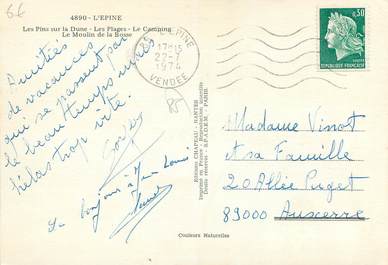 66
4890 - L'EPINE
Les Pins sur la Dune - Les Plages - Le Camping
Le Moulin de la Bosse
L'EPINE
17-15
22-7
1974
VENDEE
0,50
REPUBLIQUE FRANCAISE
Amitiés
de vacances
qui se passent par
le beau temps mais
hélas trop vite.
85
Editions CHAPEAU - NANTES
Imprimé en France - Reproduction interdite
Droits réservés - S.P.A.D.E.M. - PARIS
Madame Vinot
et sa Famille
20 Allée Puget
89000 Auxerre
bonjour à
Couleurs Naturelles